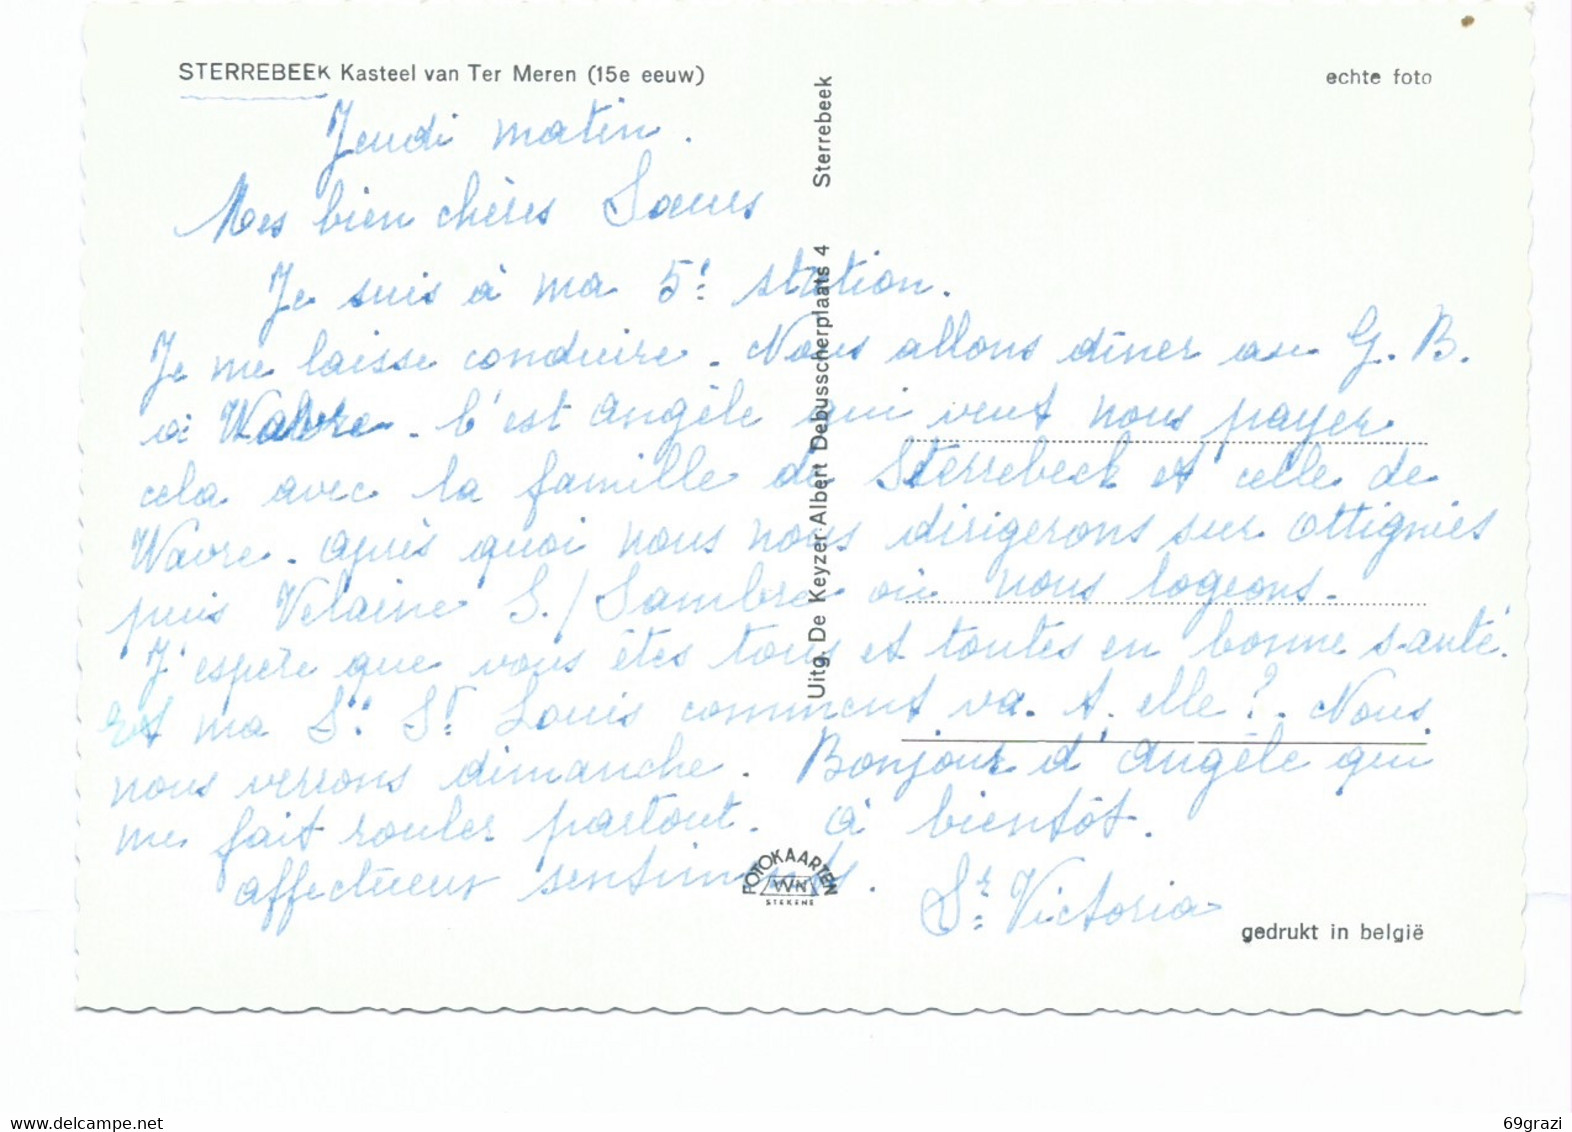 STERREBEEK Kasteel van Ter Meren (15e eeuw)
echte foto
Jeudi matin.
Mes bien chères Sœurs
Je suis à ma 5e station.
Je me laisse conduire. Nous allons dîner au G.B.
à Wavre. C'est Angèle qui veut nous payer
cela avec la famille de Sterrebeek et celle de
Wavre. Après quoi nous nous dirigerons sur Ottignies
puis Velaine S./Sambre où nous logeons.
J'espère que vous êtes tous et toutes en bonne santé.
Et ma Sr St Louis comment va-t-elle? Nous
nous verrons dimanche. Bonjour d'Angèle qui
me fait rouler partout. à bientôt.
affectueux sentiments.
Sr Victoria
Uitg. De Keyzer Albert Debusscherplaats 4 Sterrebeek
FOTOKAARTEN
WN
STEKENE
gedrukt in belgië
69grazi